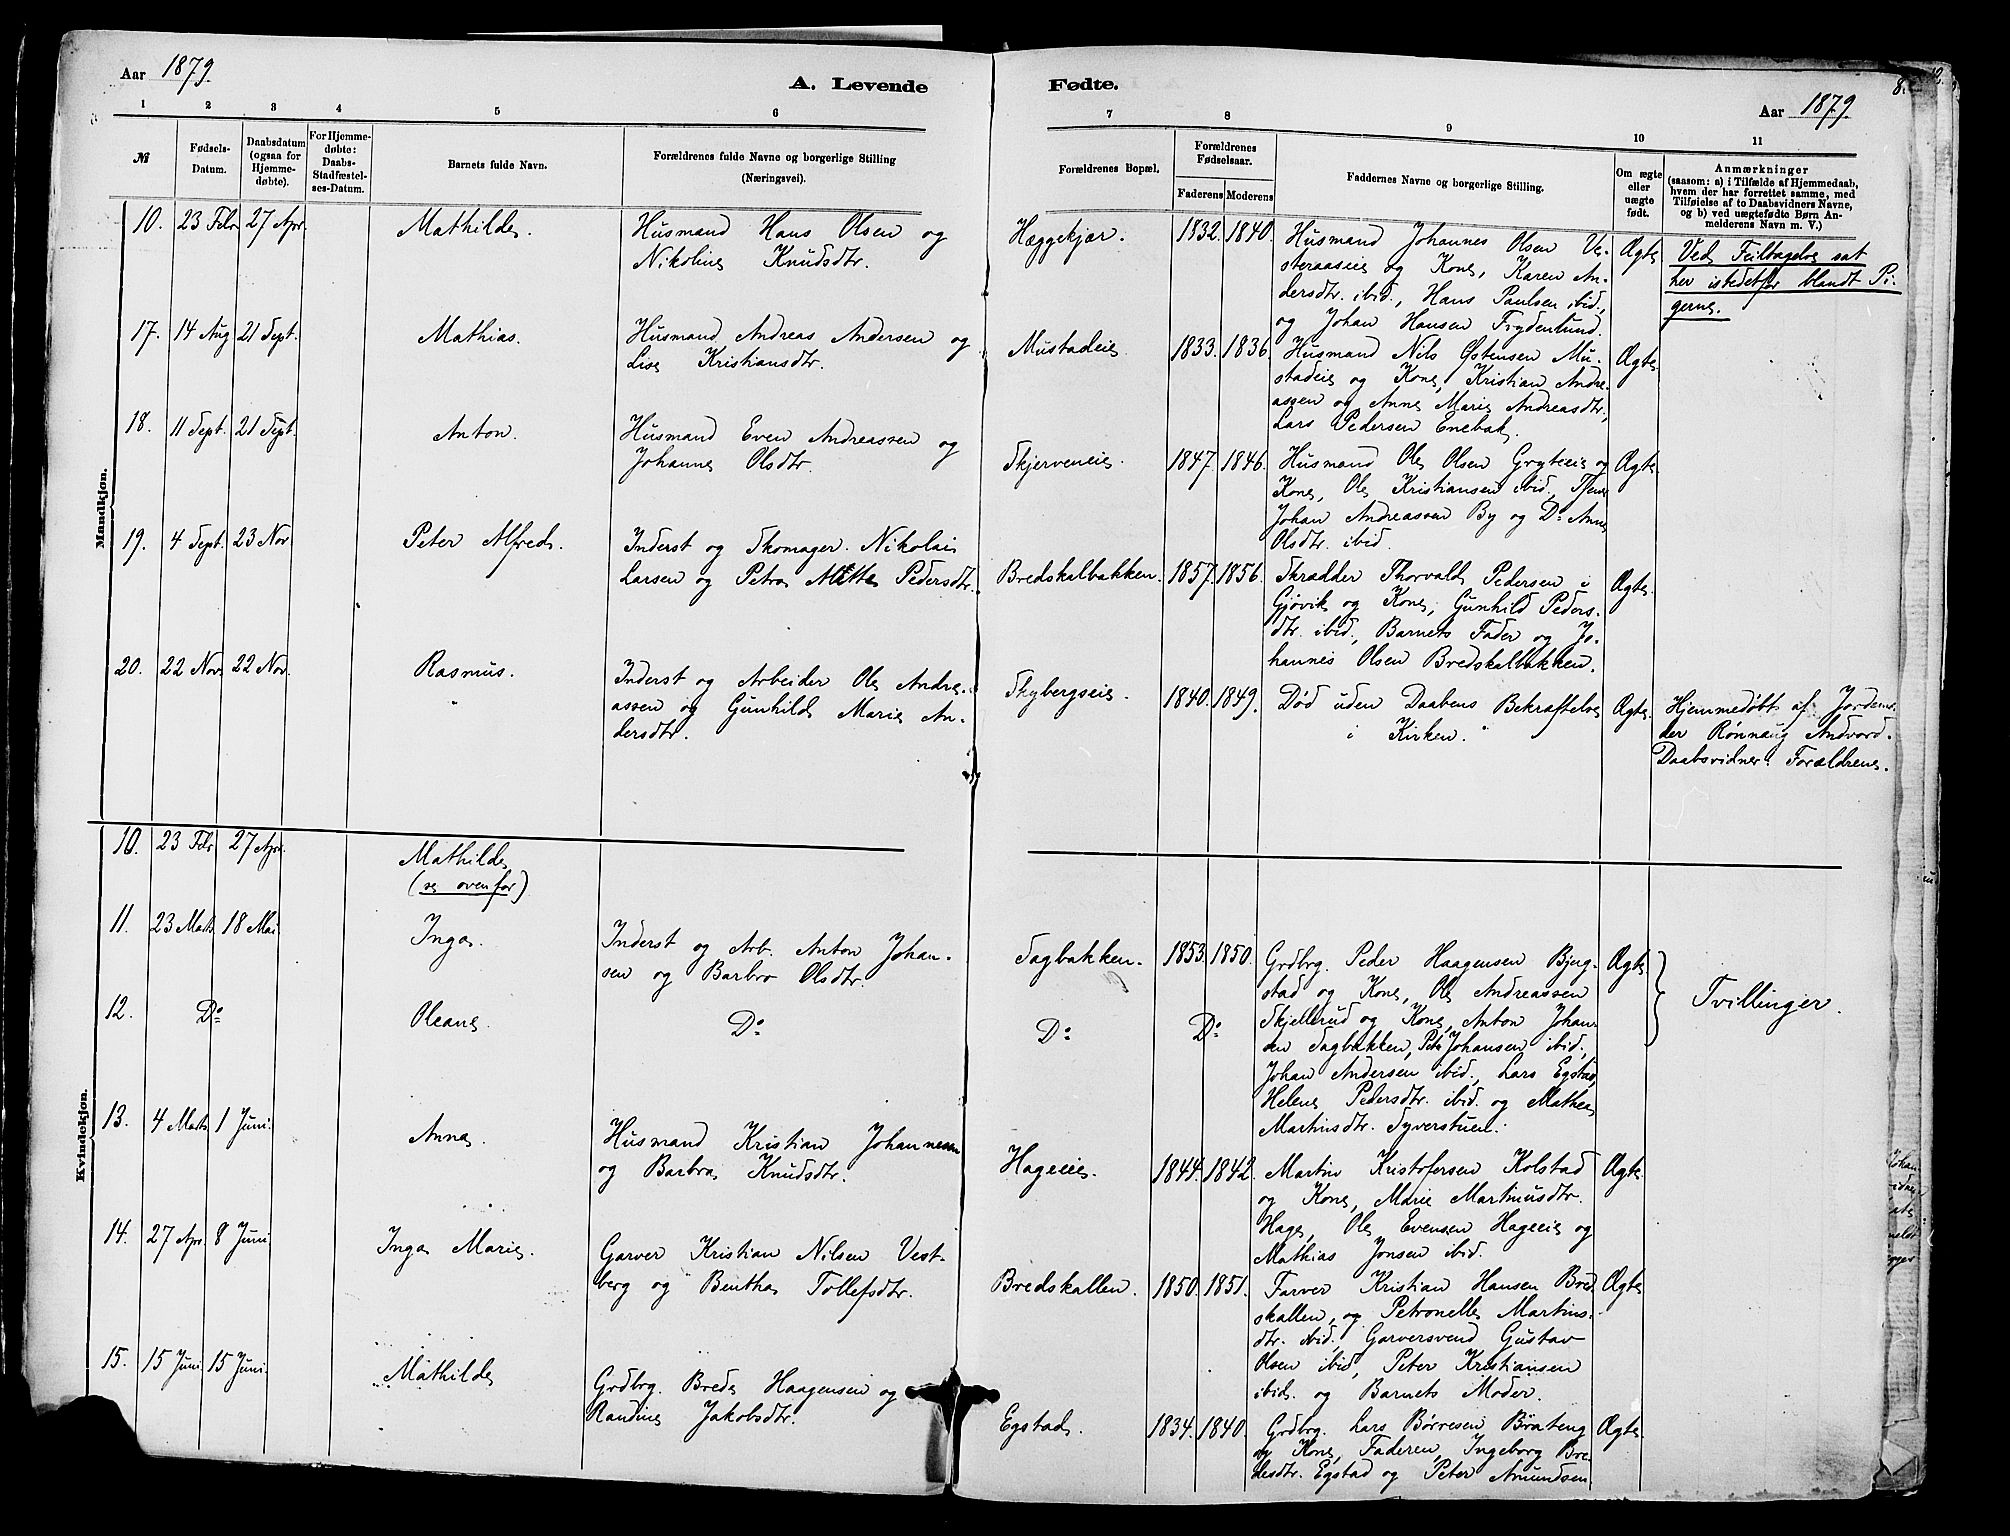 Aar 1879.
A. Levende Fødte.
Aar 1879
8.
1 2 3 4 5 6 7 8 9 10 11
№
Fødsels-
Datum.
Daabsdatum
(ogsaa for
Hjemme-
døbte).
For Hjemme-
døbte:
Daabs-
Stadfæstel-
ses-Datum.
Barnets fulde Navn.
Forældrenes fulde Navne og borgerlige Stilling
(Næringsvei).
Forældrenes Bopæl.
Forældrenes
Fødselsaar.
Faderens Moderens
Faddernes Navne og borgerlige Stilling.
Om ægte
eller
uægte
født.
Anmærkninger
(saasom: a) i Tilfælde af Hjemmedaab,
hvem der har forrettet samme, med
Tilføielse af to Daabsvidners Navne,
og b) ved uægtefødte Børn An-
melderens Navn m. V.)
Mandkjøn.
10. 23 Febr 27 Apr. Mathilde.
Husmand Hans Olsen og
Nikoline Knudsdtr.
Hæggekjær. 1832. 1840.
Husmand Johannes Olsen Ve-
steraaseie og Kone, Karen An-
dersdtr. ibid., Hans Paulsen ibid.,
og Johan Hansen Frydenlund.
Ægte
Ved Feiltagelse sat
her istedetfor blandt Pi-
gerne.
17. 14 Aug 21 Sept. Mathias.
Husmand Andreas Andersen og
Lise Kristiansdtr.
Mustadeie. 1833. 1836.
Husmand Nils Østensen Mu-
stadeie og Kone, Kristian Andre-
assen og Anne Marie Andreasdtr.,
Lars Pedersen Enebak.
Ægte
18. 11 Sept. 21 Sept. Anton.
Husmand Even Andreassen og
Johanne Olsdtr.
Skjerveneie. 1847. 1846.
Husmand Ole Olsen Gryteeie og
Kone, Ole Kristiansen ibid., Tjener
Johan Andreassen By og Do Anne
Olsdtr. ibid.
Ægte
19. 4 Sept. 23 Nov Peter Alfred.
Inderst og Skomager Nikolai
Larsen og Petra Mette Pedersdtr.
Bredskalbakken. 1857. 1856.
Skrædder Thorvald Pedersen i
Gjøvik og Kone, Gunhild Peders-
dtr. ibid., Barnets Fader og Jo-
hannes Olsen Bredskalbakken.
Ægte
20. 22 Nov. 22 Nov. Rasmus.
Inderst og Arbeider Ole Andre-
assen og Gunhild Marie An-
dersdtr.
Skybergseie. 1840. 1849.
Død uden Daabens Bekræftelse
i Kirken.
Ægte
Hjemmedøbt af Jordemo-
der Rønnaug Andvord.
Daabsvidner: Forældrene.
Kvindekjøn.
10. 23 Febr 27 Apr. Mathilde
(se ovenfor)
11. 23 Marts 18 Mai Inga.
Inderst og Arb. Anton Johan-
sen og Barbro Olsdtr.
Sagbakken. 1853. 1850.
Grdbrg. Peder Haagensen Bjug-
stad og Kone, Ole Andreassen
Skjellerud og Kone, Anton Johan-
sen Sagbakken, Peter Johansen ibid.,
Johan Andersen ibid., Lars Egstad,
Helene Pedersdtr. ibid. og Mathea
Martinsdtr. Syverstuen.
Ægte
Tvillinger.
12. Do Oleane. Do Do Do
13. 4 Marts 1 Juni. Anna.
Husmand Kristian Johannesen
og Barbra Knudsdtr.
Hageeie. 1844. 1842.
Martin Kristofersen Kolstad
og Kone, Marie Martinusdtr.
Hage, Ole Evensen Hageeie og
Mathias Jonsen ibid.
Ægte
14. 27 Apr. 8 Juni Inga Marie.
Garver Kristian Nilsen Vest-
berg og Bentha Tollefsdtr.
Bredskallen. 1850. 1851.
Farver Kristian Hansen Bred-
skallen, og Petronelle Martins-
dtr. ibid., Garversvend Gustav
Olsen ibid, Peter Kristiansen
ibid. og Barnets Moder.
Ægte
15. 15 Juni 15 Juni. Mathilde
Grdbrg. Brede Haagensen og
Randine Jakobsdtr.
Egstad. 1834. 1840.
Grdbrg. Lars Børresen Bråteng
og Kone, Faderen, Ingeborg Bre-
desdtr. Egstad og Peter Amundsen
Ægte